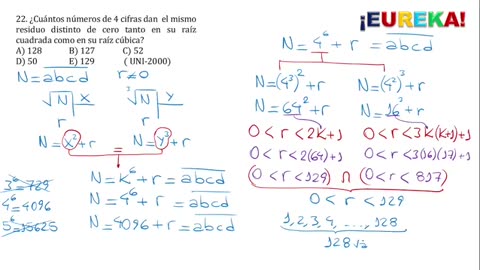 22. ¿Cuántos números de 4 cifras dan el mismo
residuo distinto de cero tanto en su raíz
cuadrada como en su raíz cúbica?
A) 128 B) 127 C) 52
D) 50 E) 129 ( UNI-2000)
N = abcd r≠0
√N | x
r
³√N | y
r
N = x² + r N = y³ + r
=
3⁶ = 729
4⁶ = 4096
5⁶ = 15625
N = K⁶ + r = abcd
N = 4⁶ + r = abcd
N = 4096 + r = abcd
¡EUREKA!
N = 4⁶ + r = abcd
N = (4³)² + r
N = 64² + r
0 < r < 2K+1
0 < r < 2(64)+1
(0 < r < 129) ∩ (0 < r < 817)
N = (4²)³ + r
N = 16³ + r
0 < r < 3K(K+1)+1
0 < r < 3(16)(17)+1
0 < r < 129
1, 2, 3, 4, ...., 128
128 #s